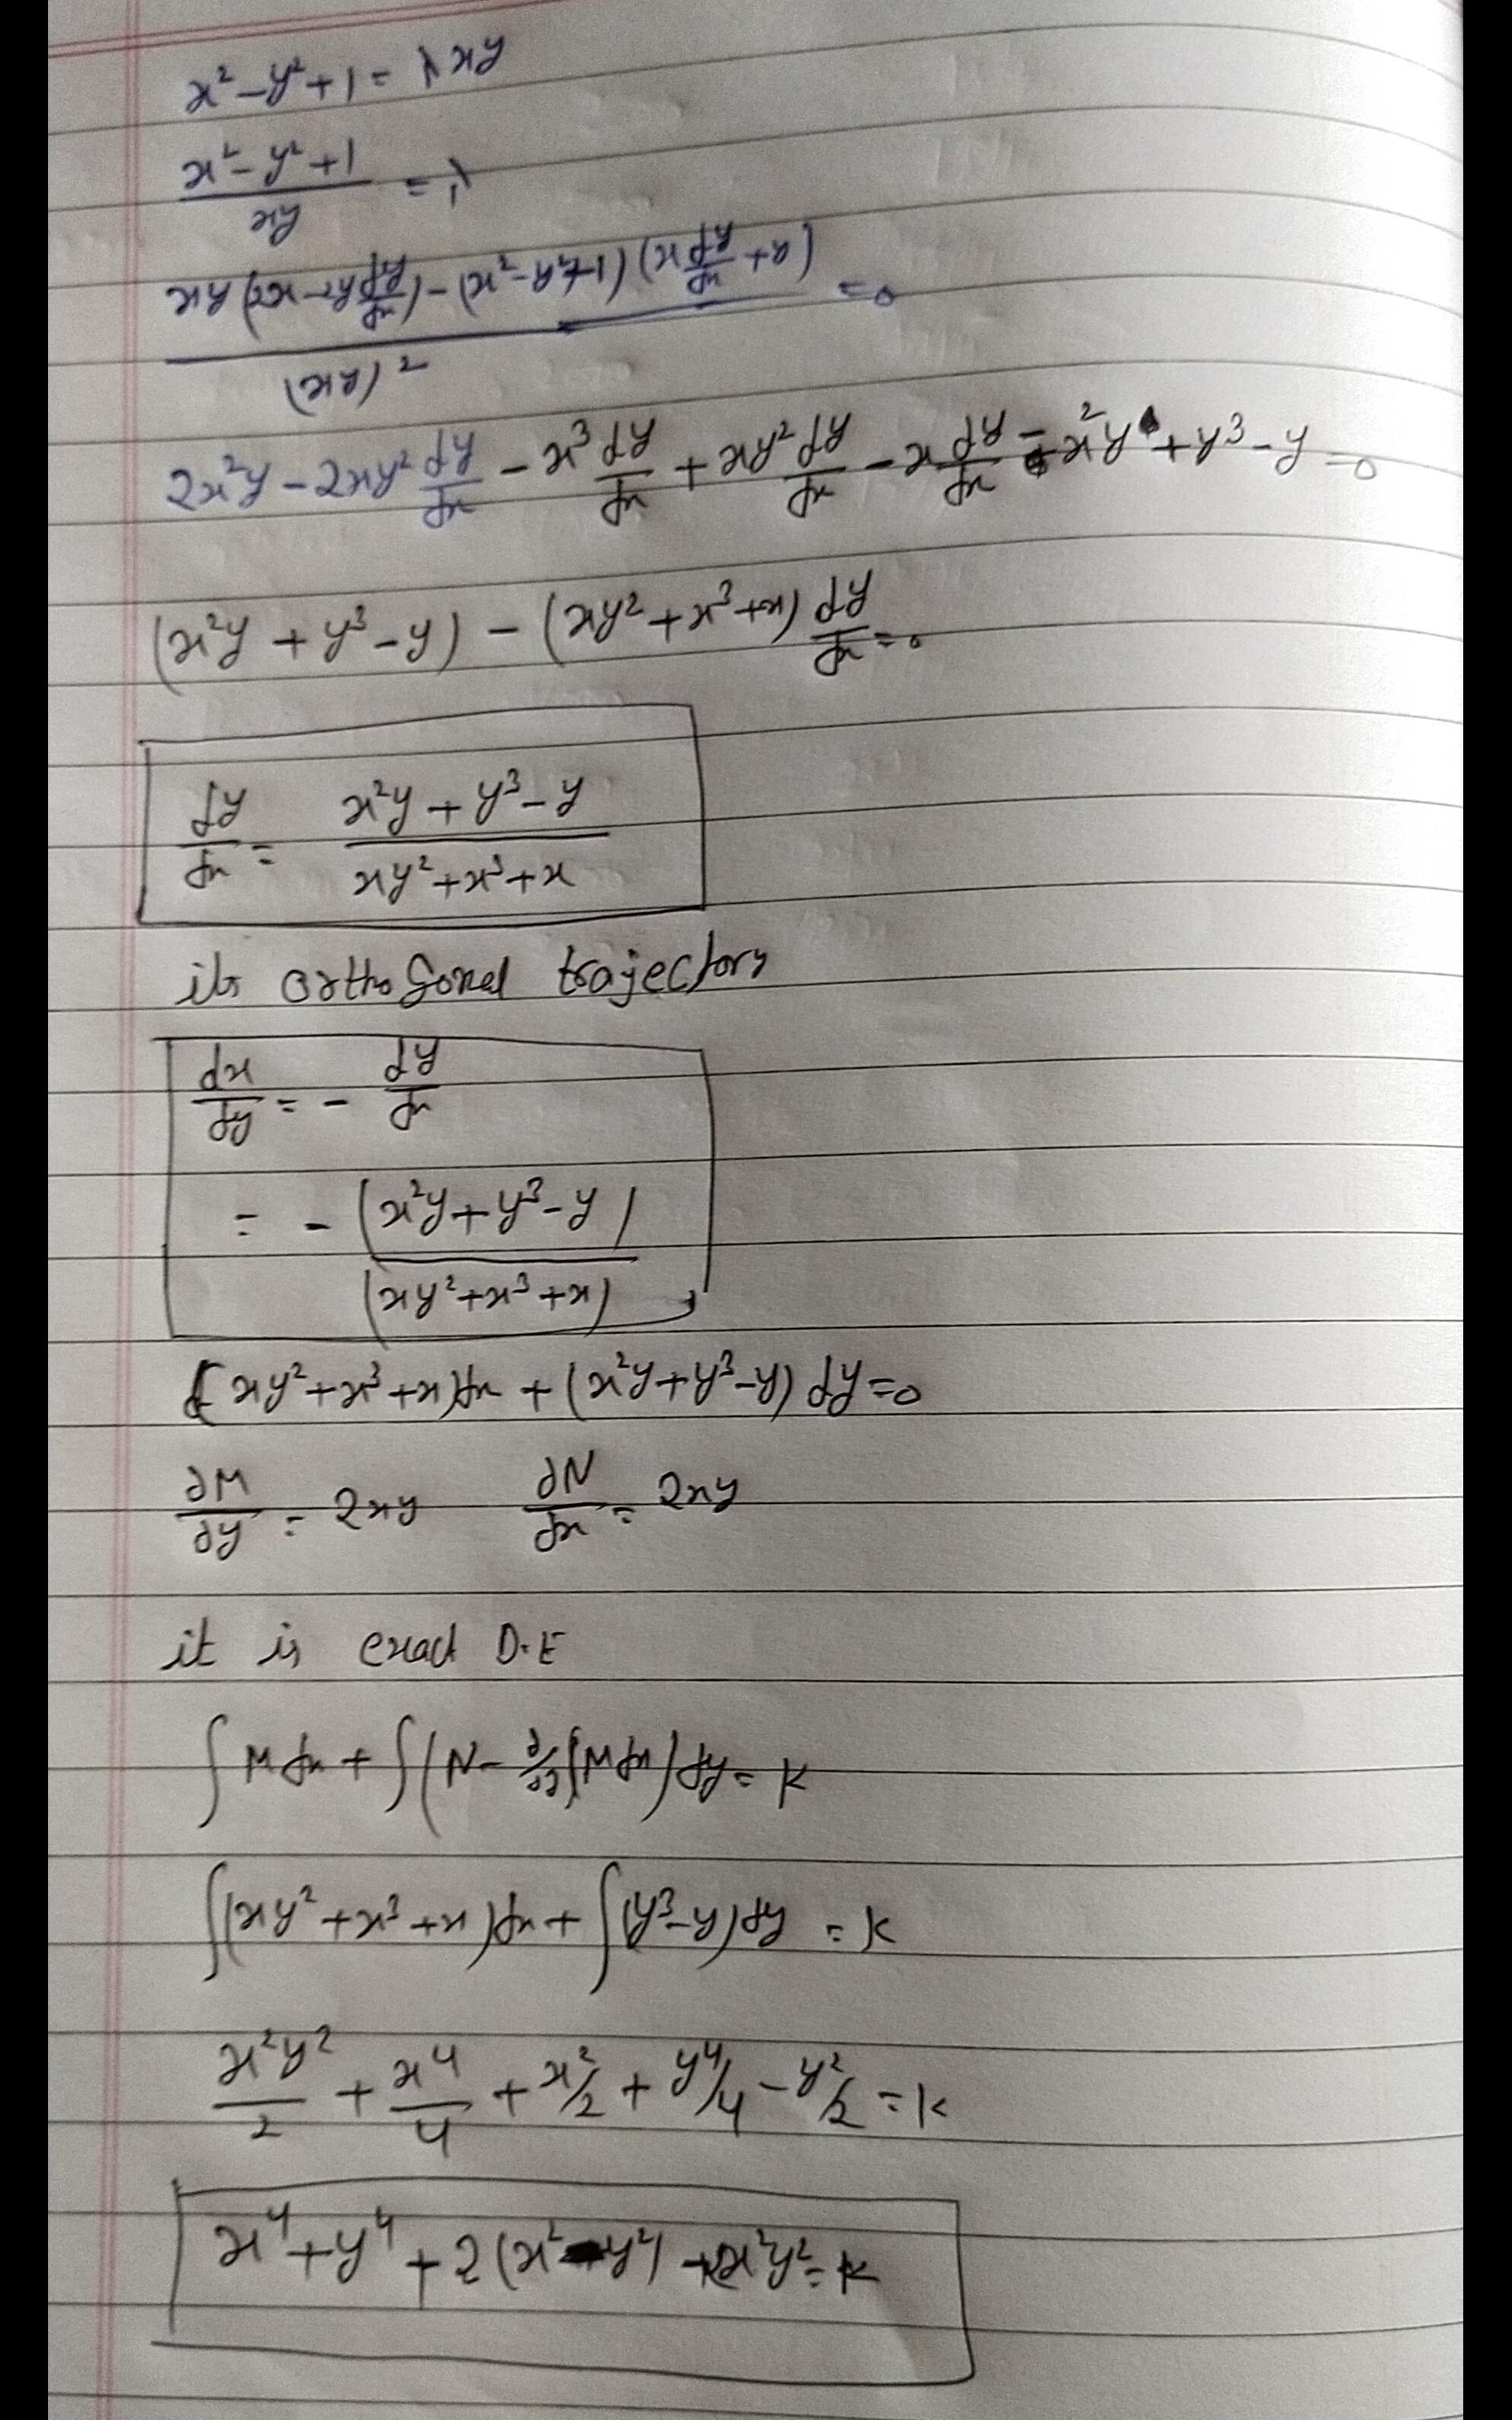 x² - y² + 1 = λxy
(x² - y² + 1)/(xy) = λ
(xy(2x - 2y dy/dx) - (x² - y² + 1)(x dy/dx + y))/(xy)² = 0
2x²y - 2xy² dy/dx - x³ dy/dx + xy² dy/dx - x dy/dx - x²y + y³ - y = 0
(x²y + y³ - y) - (xy² + x³ + x) dy/dx = 0
dy/dx = (x²y + y³ - y)/(xy² + x³ + x)
its orthogonal trajectory
dx/dy = - dy/dx
= - (x²y + y³ - y)/(xy² + x³ + x)
(xy² + x³ + x)dx + (x²y + y³ - y) dy = 0
∂M/∂y = 2xy ∂N/∂x = 2xy
it is exact D.E
∫ M dx + ∫(N - ∂/∂y ∫M dx) dy = K
∫(xy² + x³ + x)dx + ∫(y³ - y)dy = K
x²y²/2 + x⁴/4 + x²/2 + y⁴/4 - y²/2 = K
x⁴ + y⁴ + 2(x² - y²) + 2x²y² = K